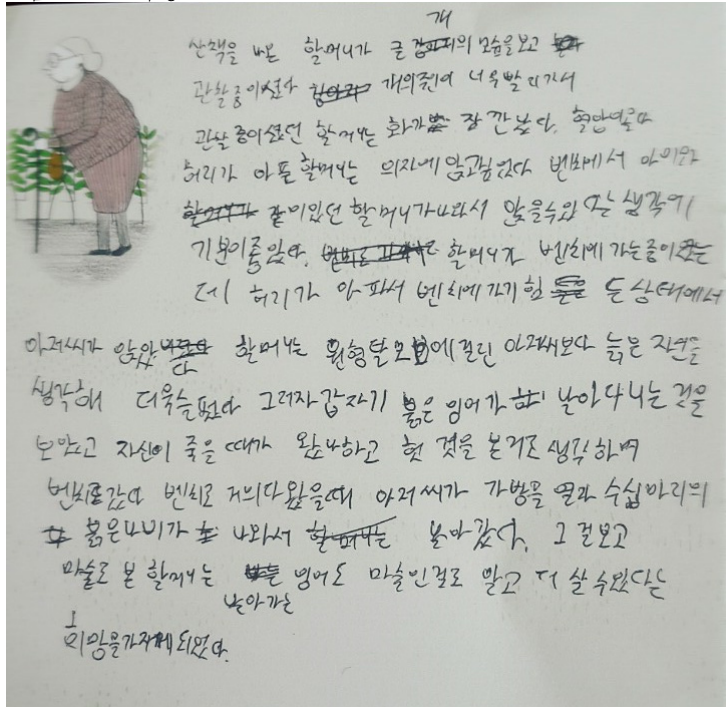 산책을 나온 할머니가 큰 개의 모습을보고
관찰중이셨다 개의주인이 너무빨리가서
관찰 중이셨던 할머니는 화가 잠깐 났다.
허리가 아픈 할머니는 의자에 앉고싶었다 벤치에서 아이와
같이있던 할머니가나와서 앉을수있다는 생각에
기분이좋았다. 할머니가 벤치에 가는중이었는
데 허리가 아파서 벤치에가기 힘든 상태에서
아저씨가 앉았다 할머니는 원형탈모에걸린 아저씨보다 늙은 자신을
생각해 더욱슬펐다 그러자갑자기 붉은 잉어가 날아다니는 것을
보았고 자신이 죽을때가 왔나하고 헛것을 본거로 생각하며
벤치로갔다 벤치로 거의다왔을때 아저씨가 가방을 열자 수십마리의
붉은나비가 나와서 날아갔다. 그걸보고
마술로 본 할머니는 날아가는 잉어도 마술인걸로 알고 더 살수있다는
희망을가지게되었다.